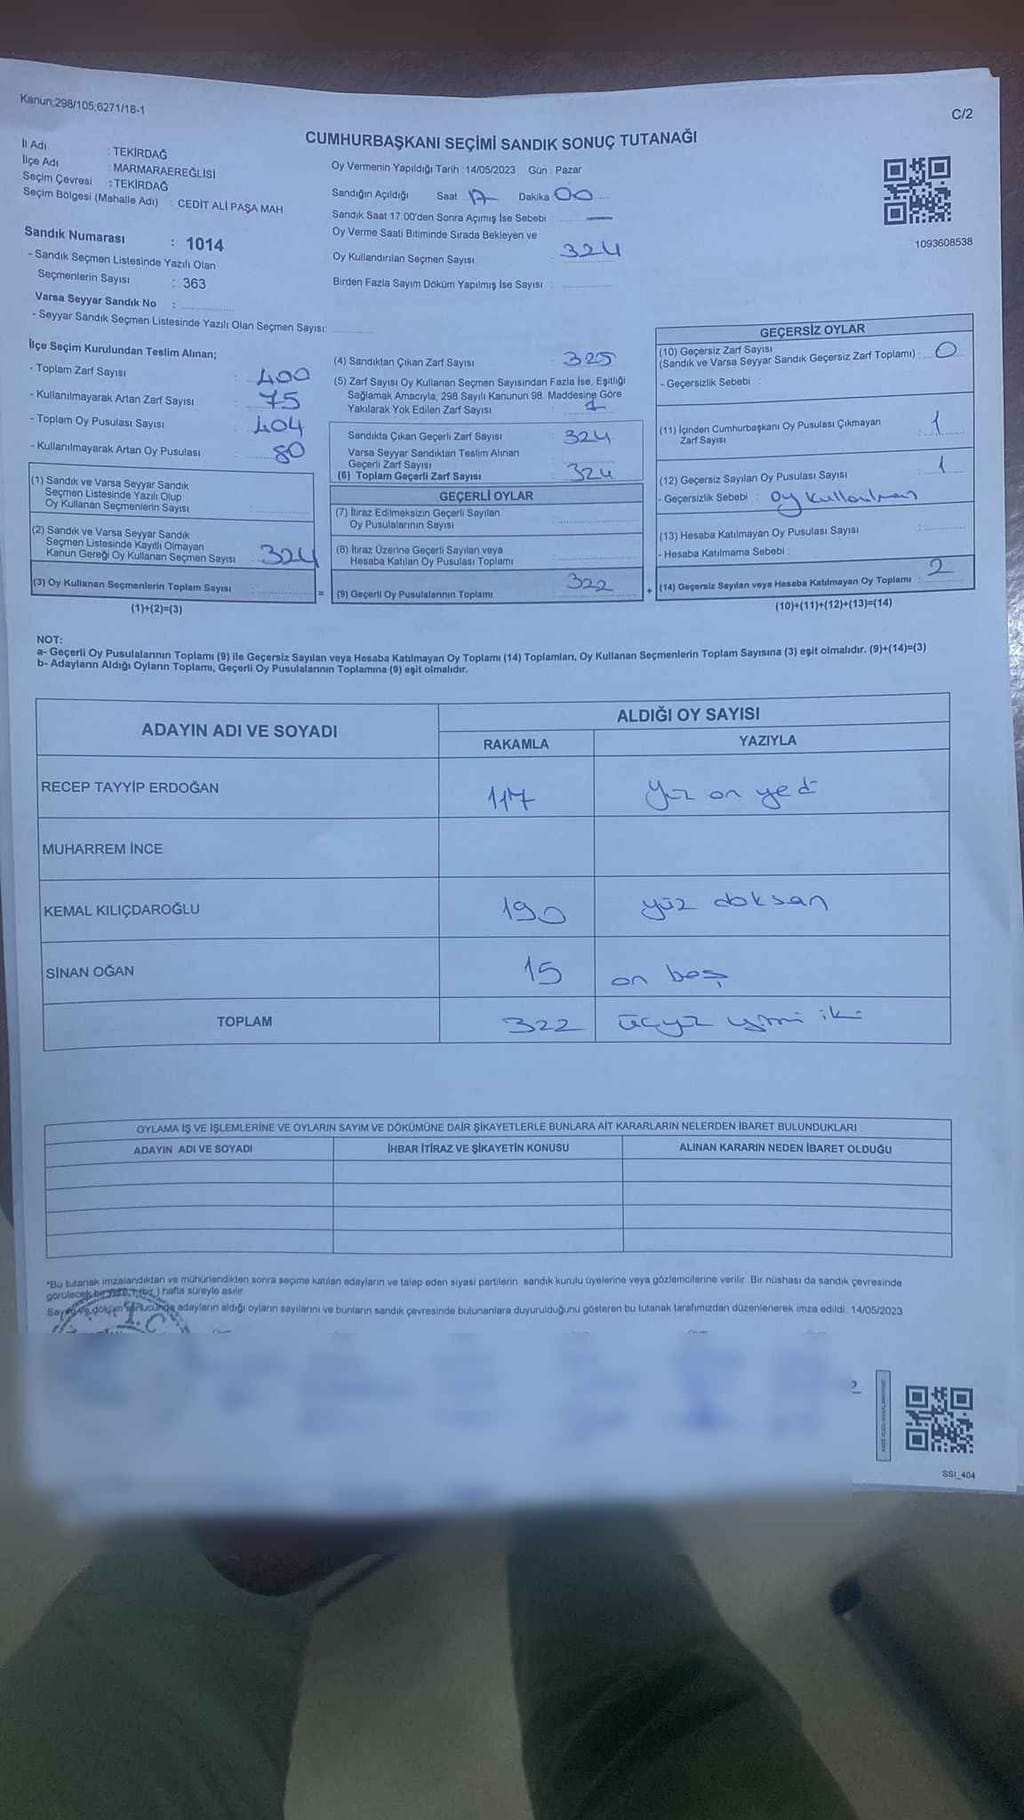 Kanun;298/105;6271/18-1
C/2
CUMHURBAŞKANI SEÇİMİ SANDIK SONUÇ TUTANAĞI
İl Adı : TEKİRDAĞ
İlçe Adı : MARMARAEREĞLİSİ
Seçim Çevresi : TEKİRDAĞ
Seçim Bölgesi (Mahalle Adı) : CEDİT ALİ PAŞA MAH
Sandık Numarası : 1014
- Sandık Seçmen Listesinde Yazılı Olan
Seçmenlerin Sayısı : 363
Varsa Seyyar Sandık No :
- Seyyar Sandık Seçmen Listesinde Yazılı Olan Seçmen Sayısı:
Oy Vermenin Yapıldığı Tarih : 14/05/2023 Gün : Pazar
Sandığın Açıldığı Saat 17 Dakika 00
Sandık Saat 17:00'den Sonra Açımış İse Sebebi
Oy Verme Saati Bitiminde Sırada Bekleyen ve
Oy Kullandırılan Seçmen Sayısı 324
Birden Fazla Sayım Döküm Yapılmış İse Sayısı :
1093608538
İlçe Seçim Kurulundan Teslim Alınan;
- Toplam Zarf Sayısı : 400
- Kullanılmayarak Artan Zarf Sayısı : 75
- Toplam Oy Pusulası Sayısı : 404
- Kullanılmayarak Artan Oy Pusulası : 80
(1) Sandık ve Varsa Seyyar Sandık
Seçmen Listesinde Yazılı Olup
Oy Kullanan Seçmenlerin Sayısı
(2) Sandık ve Varsa Seyyar Sandık
Seçmen Listesinde Kayıtlı Olmayan
Kanun Gereği Oy Kullanan Seçmen Sayısı : 324
(3) Oy Kullanan Seçmenlerin Toplam Sayısı
(1)+(2)=(3)
(4) Sandıktan Çıkan Zarf Sayısı : 325
(5) Zarf Sayısı Oy Kullanan Seçmen Sayısından Fazla İse, Eşitliği
Sağlamak Amacıyla, 298 Sayılı Kanunun 98. Maddesine Göre
Yakılarak Yok Edilen Zarf Sayısı : 1
Sandıkta Çıkan Geçerli Zarf Sayısı : 324
Varsa Seyyar Sandıktan Teslim Alınan
Geçerli Zarf Sayısı
(6) Toplam Geçerli Zarf Sayısı 324
GEÇERLİ OYLAR
(7) İtiraz Edilmeksizin Geçerli Sayılan
Oy Pusulalarının Sayısı
(8) İtiraz Üzerine Geçerli Sayılan veya
Hesaba Katılan Oy Pusulası Toplamı
= (9) Geçerli Oy Pusulalarının Toplamı 322
GEÇERSİZ OYLAR
(10) Geçersiz Zarf Sayısı
(Sandık ve Varsa Seyyar Sandık Geçersiz Zarf Toplamı) : 0
- Geçersizlik Sebebi :
(11) İçinden Cumhurbaşkanı Oy Pusulası Çıkmayan
Zarf Sayısı 1
(12) Geçersiz Sayılan Oy Pusulası Sayısı 1
- Geçersizlik Sebebi :
(13) Hesaba Katılmayan Oy Pusulası Sayısı
- Hesaba Katılmama Sebebi :
+ (14) Geçersiz Sayılan veya Hesaba Katılmayan Oy Toplamı : 2
(10)+(11)+(12)+(13)=(14)
NOT:
a- Geçerli Oy Pusulalarının Toplamı (9) ile Geçersiz Sayılan veya Hesaba Katılmayan Oy Toplamı (14) Toplamları, Oy Kullanan Seçmenlerin Toplam Sayısına (3) eşit olmalıdır. (9)+(14)=(3)
b- Adayların Aldığı Oyların Toplamı, Geçerli Oy Pusulalarının Toplamına (9) eşit olmalıdır.
ADAYIN ADI VE SOYADI ALDIĞI OY SAYISI
RAKAMLA YAZIYLA
RECEP TAYYİP ERDOĞAN 117 Yüz on yedi
MUHARREM İNCE
KEMAL KILIÇDAROĞLU 190 yüz doksan
SİNAN OĞAN 15 on beş
TOPLAM 322 üçyüz yirmi iki
OYLAMA İŞ VE İŞLEMLERİNE VE OYLARIN SAYIM VE DÖKÜMÜNE DAİR ŞİKAYETLERLE BUNLARA AİT KARARLARIN NELERDEN İBARET BULUNDUKLARI
ADAYIN ADI VE SOYADI İHBAR İTİRAZ VE ŞİKAYETİN KONUSU ALINAN KARARIN NEDEN İBARET OLDUĞU
*Bu tutanak imzalandıktan ve mühürlendikten sonra seçime katılan adayların ve talep eden siyasi partilerin sandık kurulu üyelerine veya gözlemcilerine verilir. Bir nüshası da sandık çevresinde
hafta süreyle asılır.
adayların aldığı oyların sayılarını ve bunların sandık çevresinde bulunanlara duyurulduğunu gösteren bu tutanak tarafımızdan düzenlenerek imza edildi. 14/05/2023
T.C
SSI_404